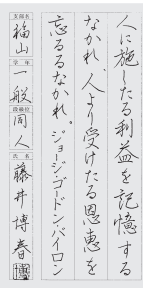 人に施したる利益を記憶する
なかれ、人より受けたる恩恵を
忘るるなかれ。ジョージ・ゴードン・バイロン
支部名
福山
学年
一般
段級位
同人
氏名
藤井博春